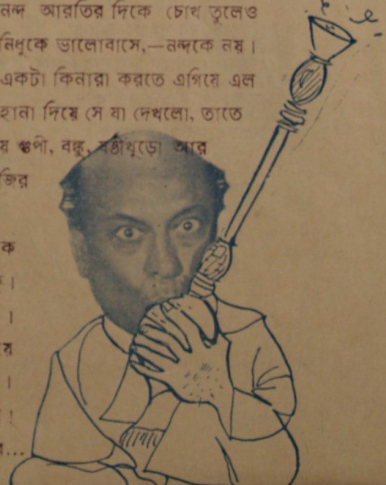 নন্দ আরতির দিকে চোখ তুলেও
নিধুকে ভালোবাসে,—নন্দকে নয়।
একটা কিনারা করতে এগিয়ে এল
হানা দিয়ে সে যা দেখলো, তাতে
য় গুপী, বঙ্কু, ষষ্ঠীখুড়ো আর
জির
ক
।
।
রে
।
!
...